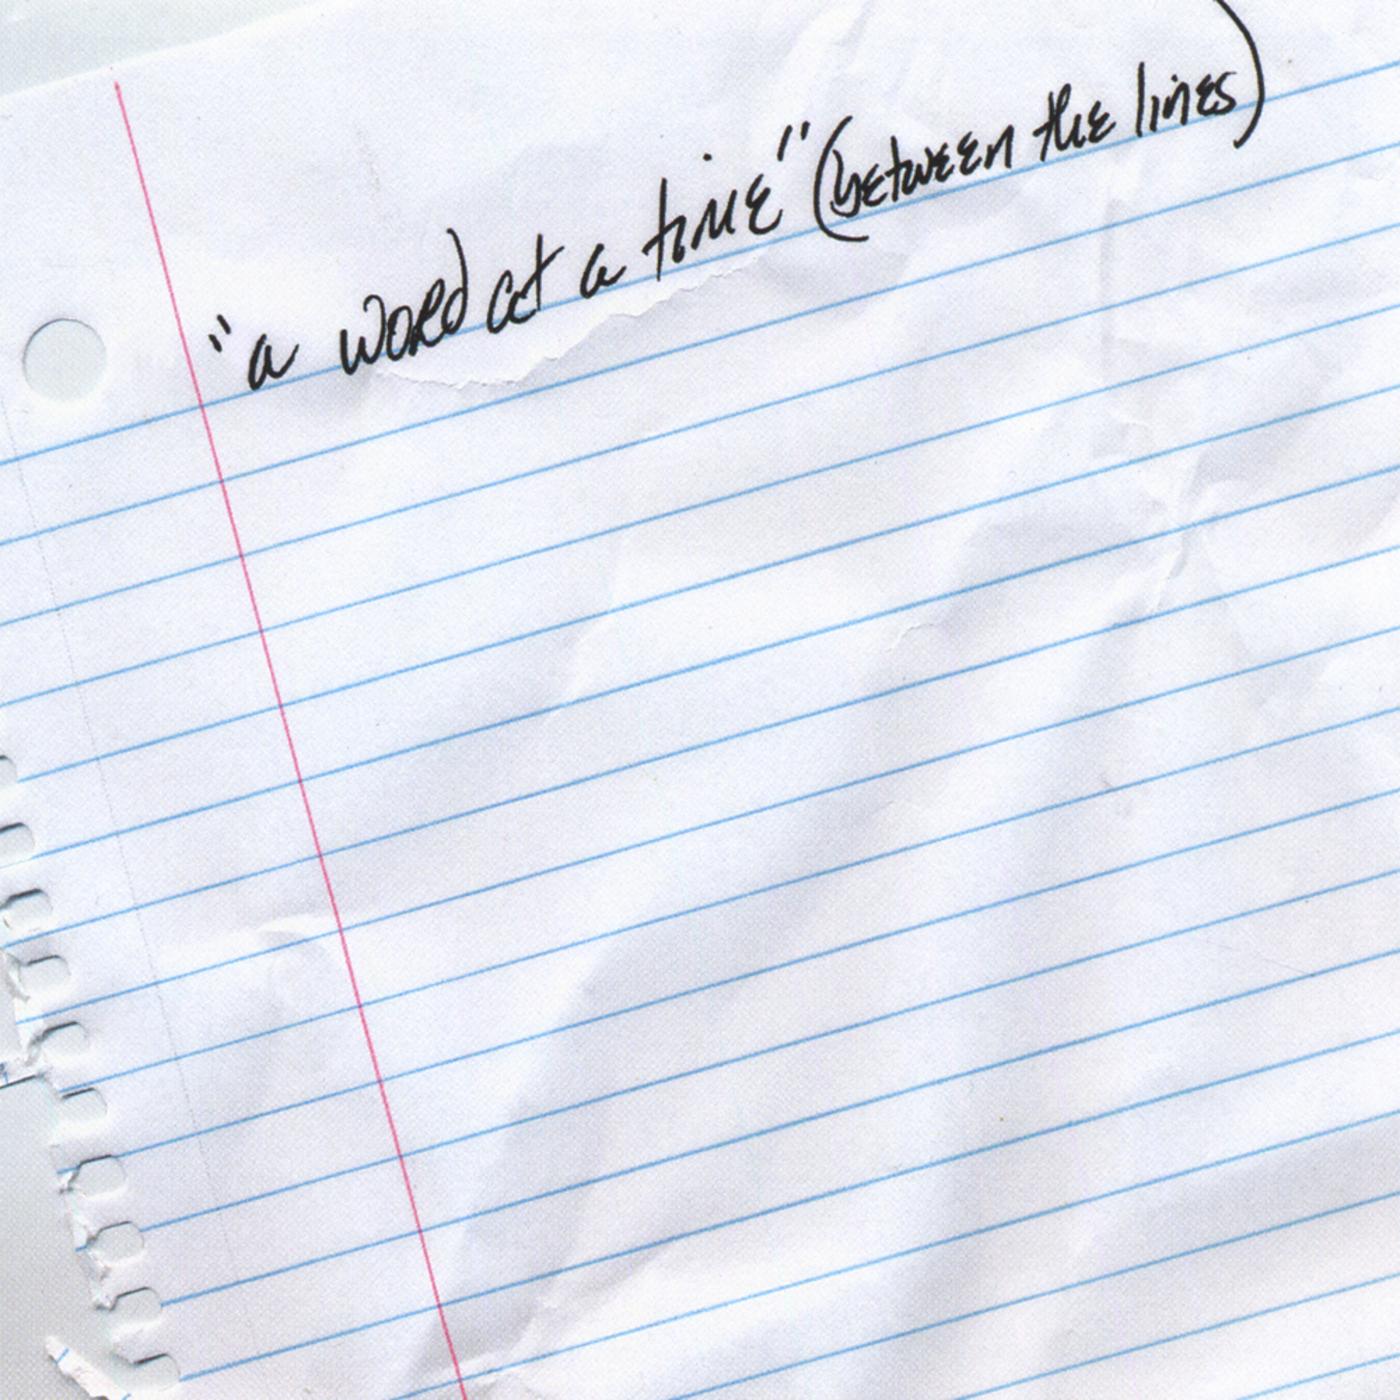 "a word at a time" (between the lines)